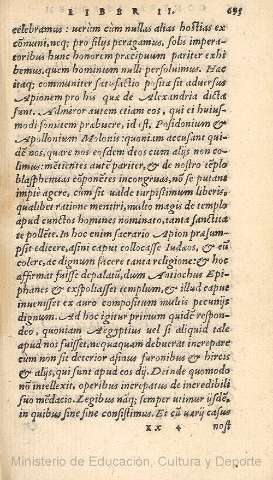 LIBER II. 695
celebramus: verùm cum nullas alias hostias ex
cõmuni, neq; pro filijs peragamus, solis impera-
toribus hunc honorem præcipuum pariter exhi
bemus, quem hominum nulli persoluimus. Hæc
itaq; communiter satisfactio posita sit aduersus
Apionem pro his quæ de Alexandria dicta
sunt. Admiror autem etiam eos, qui ei huius-
modi fomitem præbuere, id est, Posidonium &
Apollonium Molonis: quoniam accusant qui-
dẽ nos, quare nos eosdem deos cum alijs non co-
limus: mẽtientes autẽ pariter, & de nostro tẽplo
blasphemias cõponẽtes incongruas, nõ se putant
impiè agere, cùm sit valde turpissimum liberis,
qualibet ratione mentiri, multo magis de templo
apud cunctos homines nominato, tanta sanctita
te pollẽte. In hoc enim sacrario Apion præsum-
psit edicere, asini caput collocasse Iudæos, & eũ
colere, ac dignum facere tanta religione: & hoc
affirmat fuisse depalatũ, dum Antiochus Epi-
phanes & expoliasset templum, & illud caput
inuenisset ex auro compositum multis pecunijs
dignum. Ad hoc igitur primum quidẽ respon-
deo, quoniam Aegyptius vel si aliquid tale
apud nos fuisset, nequaquam debuerat increpare
cum non sit deterior asinus furonibus & hircis
& alijs, qui sunt apud eos dij. Deinde quomodo
nõ intellexit, operibus increpatus de incredibili
suo mẽdacio. Legibus nãq; semper vtimur ijsdẽ,
in quibus sine fine consistimus. Et cũ varij casus
xx 4 nost
Ministerio de Educación, Cultura y Deporte